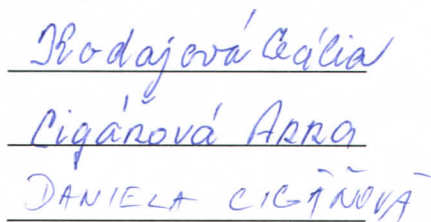 Kodajová Cecília
Cigáňová Anna
DANIELA CIGÁŇOVÁ